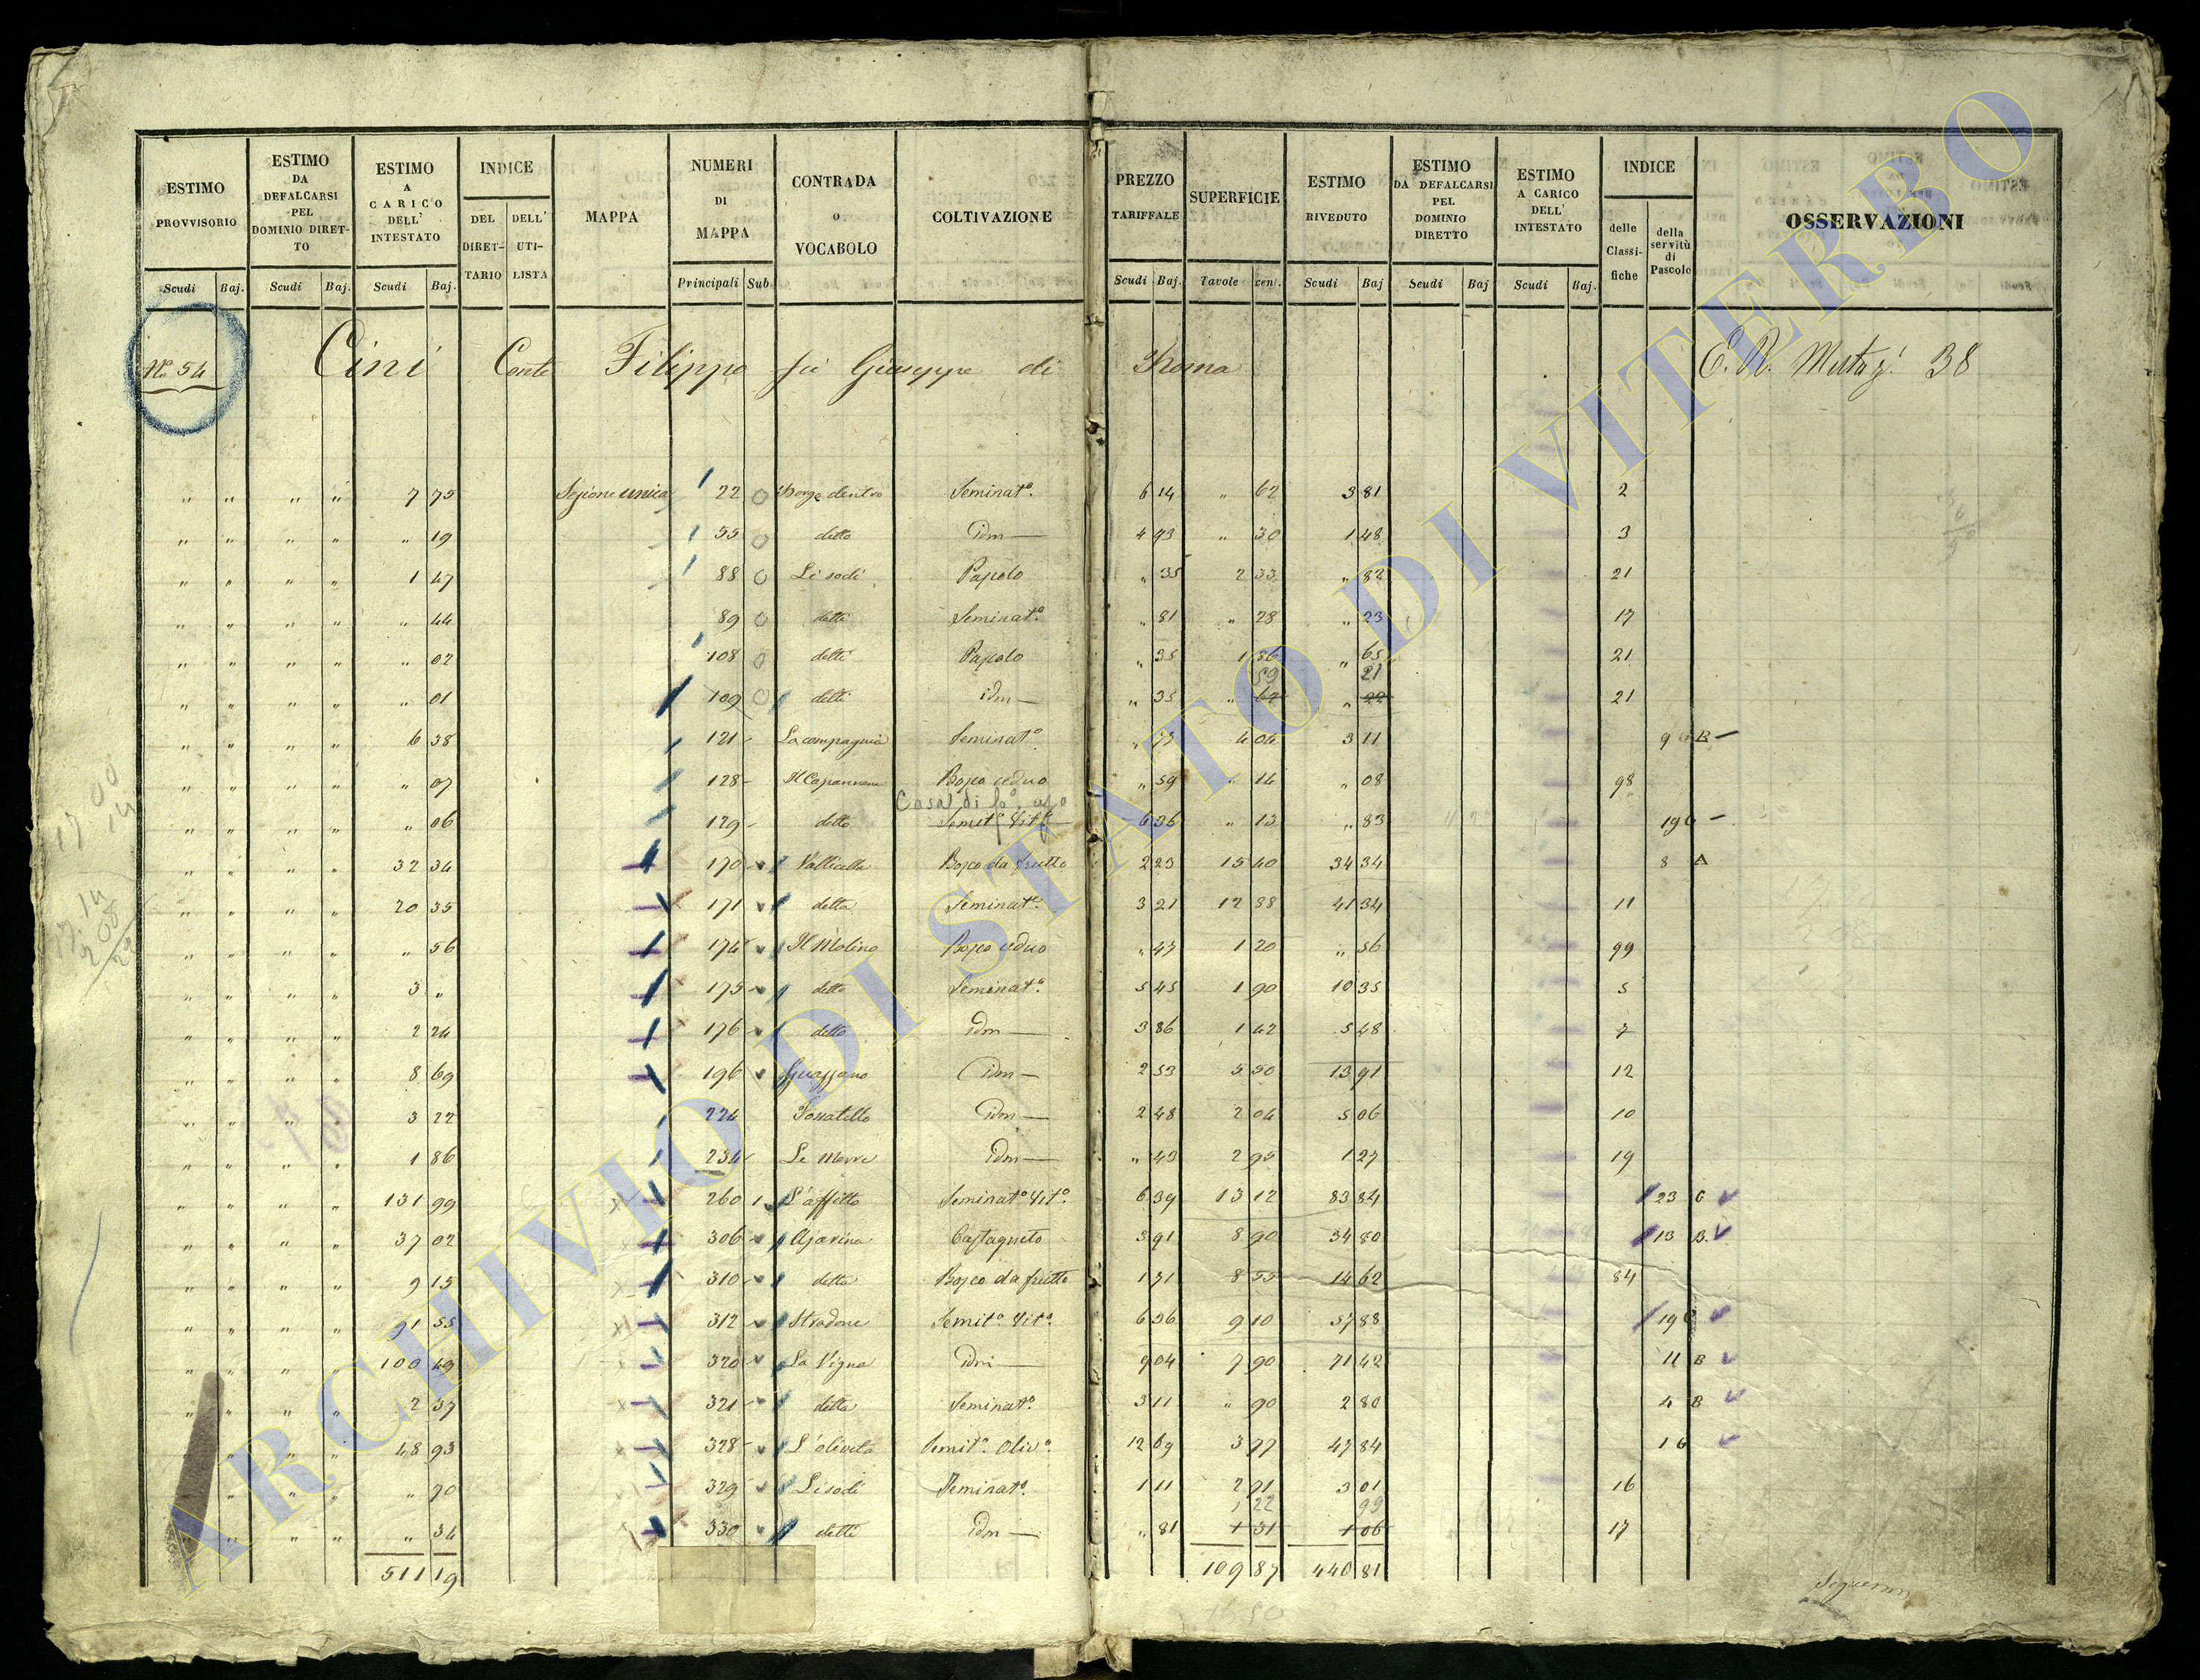 ESTIMO PROVVISORIO | ESTIMO DA DEFALCARSI PEL DOMINIO DIRETTO | ESTIMO A CARICO DELL' INTESTATO | INDICE | MAPPA | NUMERI DI MAPPA | CONTRADA o VOCABOLO | COLTIVAZIONE | PREZZO TARIFFALE | SUPERFICIE | ESTIMO RIVEDUTO | ESTIMO DA DEFALCARSI PEL DOMINIO DIRETTO | ESTIMO A CARICO DELL' INTESTATO | INDICE | OSSERVAZIONI
DEL DIRETTARIO | DELL' UTILISTA | delle Classifiche | della servitù di Pascolo
Scudi | Baj. | Scudi | Baj. | Scudi | Baj. | Principali | Sub | Scudi | Baj. | Tavole | cen. | Scudi | Baj | Scudi | Baj | Scudi | Baj.
No. 54 Cini Conte Filippo fu Giuseppe di Roma
38
" " " " 7 75 Sezione unica 22 dentro Seminato. 6 14 " 62 3 81 2
" " " " " 19 55 detto idm 4 93 " 30 1 48 3
" " " " 1 47 88 Li sodi Pascolo " 35 2 33 " 82 21
" " " " " 44 89 detti Seminato. " 81 " 28 " 23 17
" " " " " 02 108 detti Pascolo " 35 1 86 " 65 21
59 21
" " " " " 01 109 detti idm " 35 " 21
" " " " 6 38 121 La compagnia Seminato. " 77 4 04 3 11 9 B
" " " " " 07 128 Il Capannone Bosco ceduo " 59 " 14 " 08 98
Casa di
" " " " " 06 129 detto 6 36 " 13 " 83 19
" " " " 32 34 170 Vallicella Bosco da frutto 2 23 15 40 34 34 8 A
" " " " 20 35 171 detta Seminato. 3 21 12 88 41 34 11
" " " " " 56 174 Il Molino Bosco ceduo " 47 1 20 " 56 99
" " " " 3 " 175 detto Seminato. 5 45 1 90 10 35 5
" " " " 2 24 176 detto idm 3 86 1 42 5 48 7
" " " " 8 69 196 Guazzano idm 2 53 5 50 13 91 12
" " " " 3 22 224 Fossatello idm 2 48 2 04 5 06 10
" " " " 1 86 234 Le Morre idm " 43 2 95 1 27 19
" " " " 131 99 260 1 L'affitto Seminato Vito. 6 39 13 12 83 84 23 C
" " " " 37 02 306 Castagneto 3 91 8 90 34 80 13 B.
" " " " 9 15 310 detta Bosco da frutto 1 71 8 55 14 62 84
" " " " 91 55 312 Stradone Semito. Vito. 6 36 9 10 57 88 19 C
" " " " 100 49 320 La Vigna idm 9 04 7 90 71 42 11 B
" " " " 2 37 321 detta Seminato. 3 11 " 90 2 80 4 B
" " " " 48 93 328 L'oliveto Semito. Olivo. 12 69 3 77 47 84 1
" " " " " 70 329 Li sodi Seminato. 1 11 2 71 3 01 16
1 22 99
" " " " " 34 330 detti idm " 81 1 31 1 06 17
511 19 109 87 440 81
ARCHIVIO DI STATO DI VITERBO